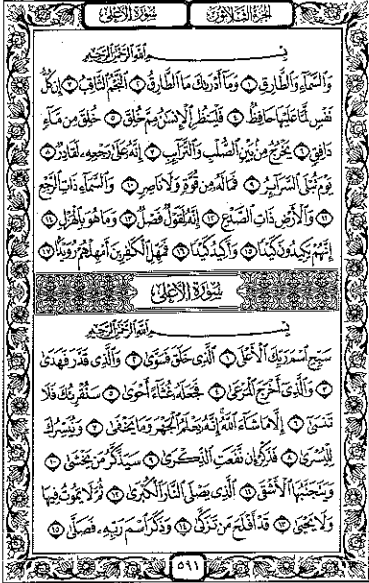 سورة الأعلى
الجزء الثلاثون
بسم الله الرحمن الرحيم
والسماء والطارق ١ وما أدريك ما الطارق ٢ النجم الثاقب ٣ إن كل
نفس لما عليها حافظ ٤ فلينظر الإنسن مم خلق ٥ خلق من ماء
دافق ٦ يخرج من بين الصلب والترائب ٧ إنه على رجعه لقادر ٨
يوم تبلى السرائر ٩ فما له من قوة ولا ناصر ١٠ والسماء ذات الرجع
١١ والأرض ذات الصدع ١٢ إنه لقول فصل ١٣ وما هو بالهزل ١٤
إنهم يكيدون كيدا ١٥ وأكيد كيدا ١٦ فمهل الكفرين أمهلهم رويدا ١٧
سورة الأعلى
بسم الله الرحمن الرحيم
سبح اسم ربك الأعلى ١ الذى خلق فسوى ٢ والذى قدر فهدى
٣ والذى أخرج المرعى ٤ فجعله غثاء أحوى ٥ سنقرئك فلا
تنسى ٦ إلا ما شاء الله إنه يعلم الجهر وما يخفى ٧ ونيسرك
لليسرى ٨ فذكر إن نفعت الذكرى ٩ سيذكر من يخشى ١٠
ويتجنبها الأشقى ١١ الذى يصلى النار الكبرى ١٢ ثم لا يموت فيها
ولا يحيى ١٣ قد أفلح من تزكى ١٤ وذكر اسم ربه فصلى ١٥
٥٩١